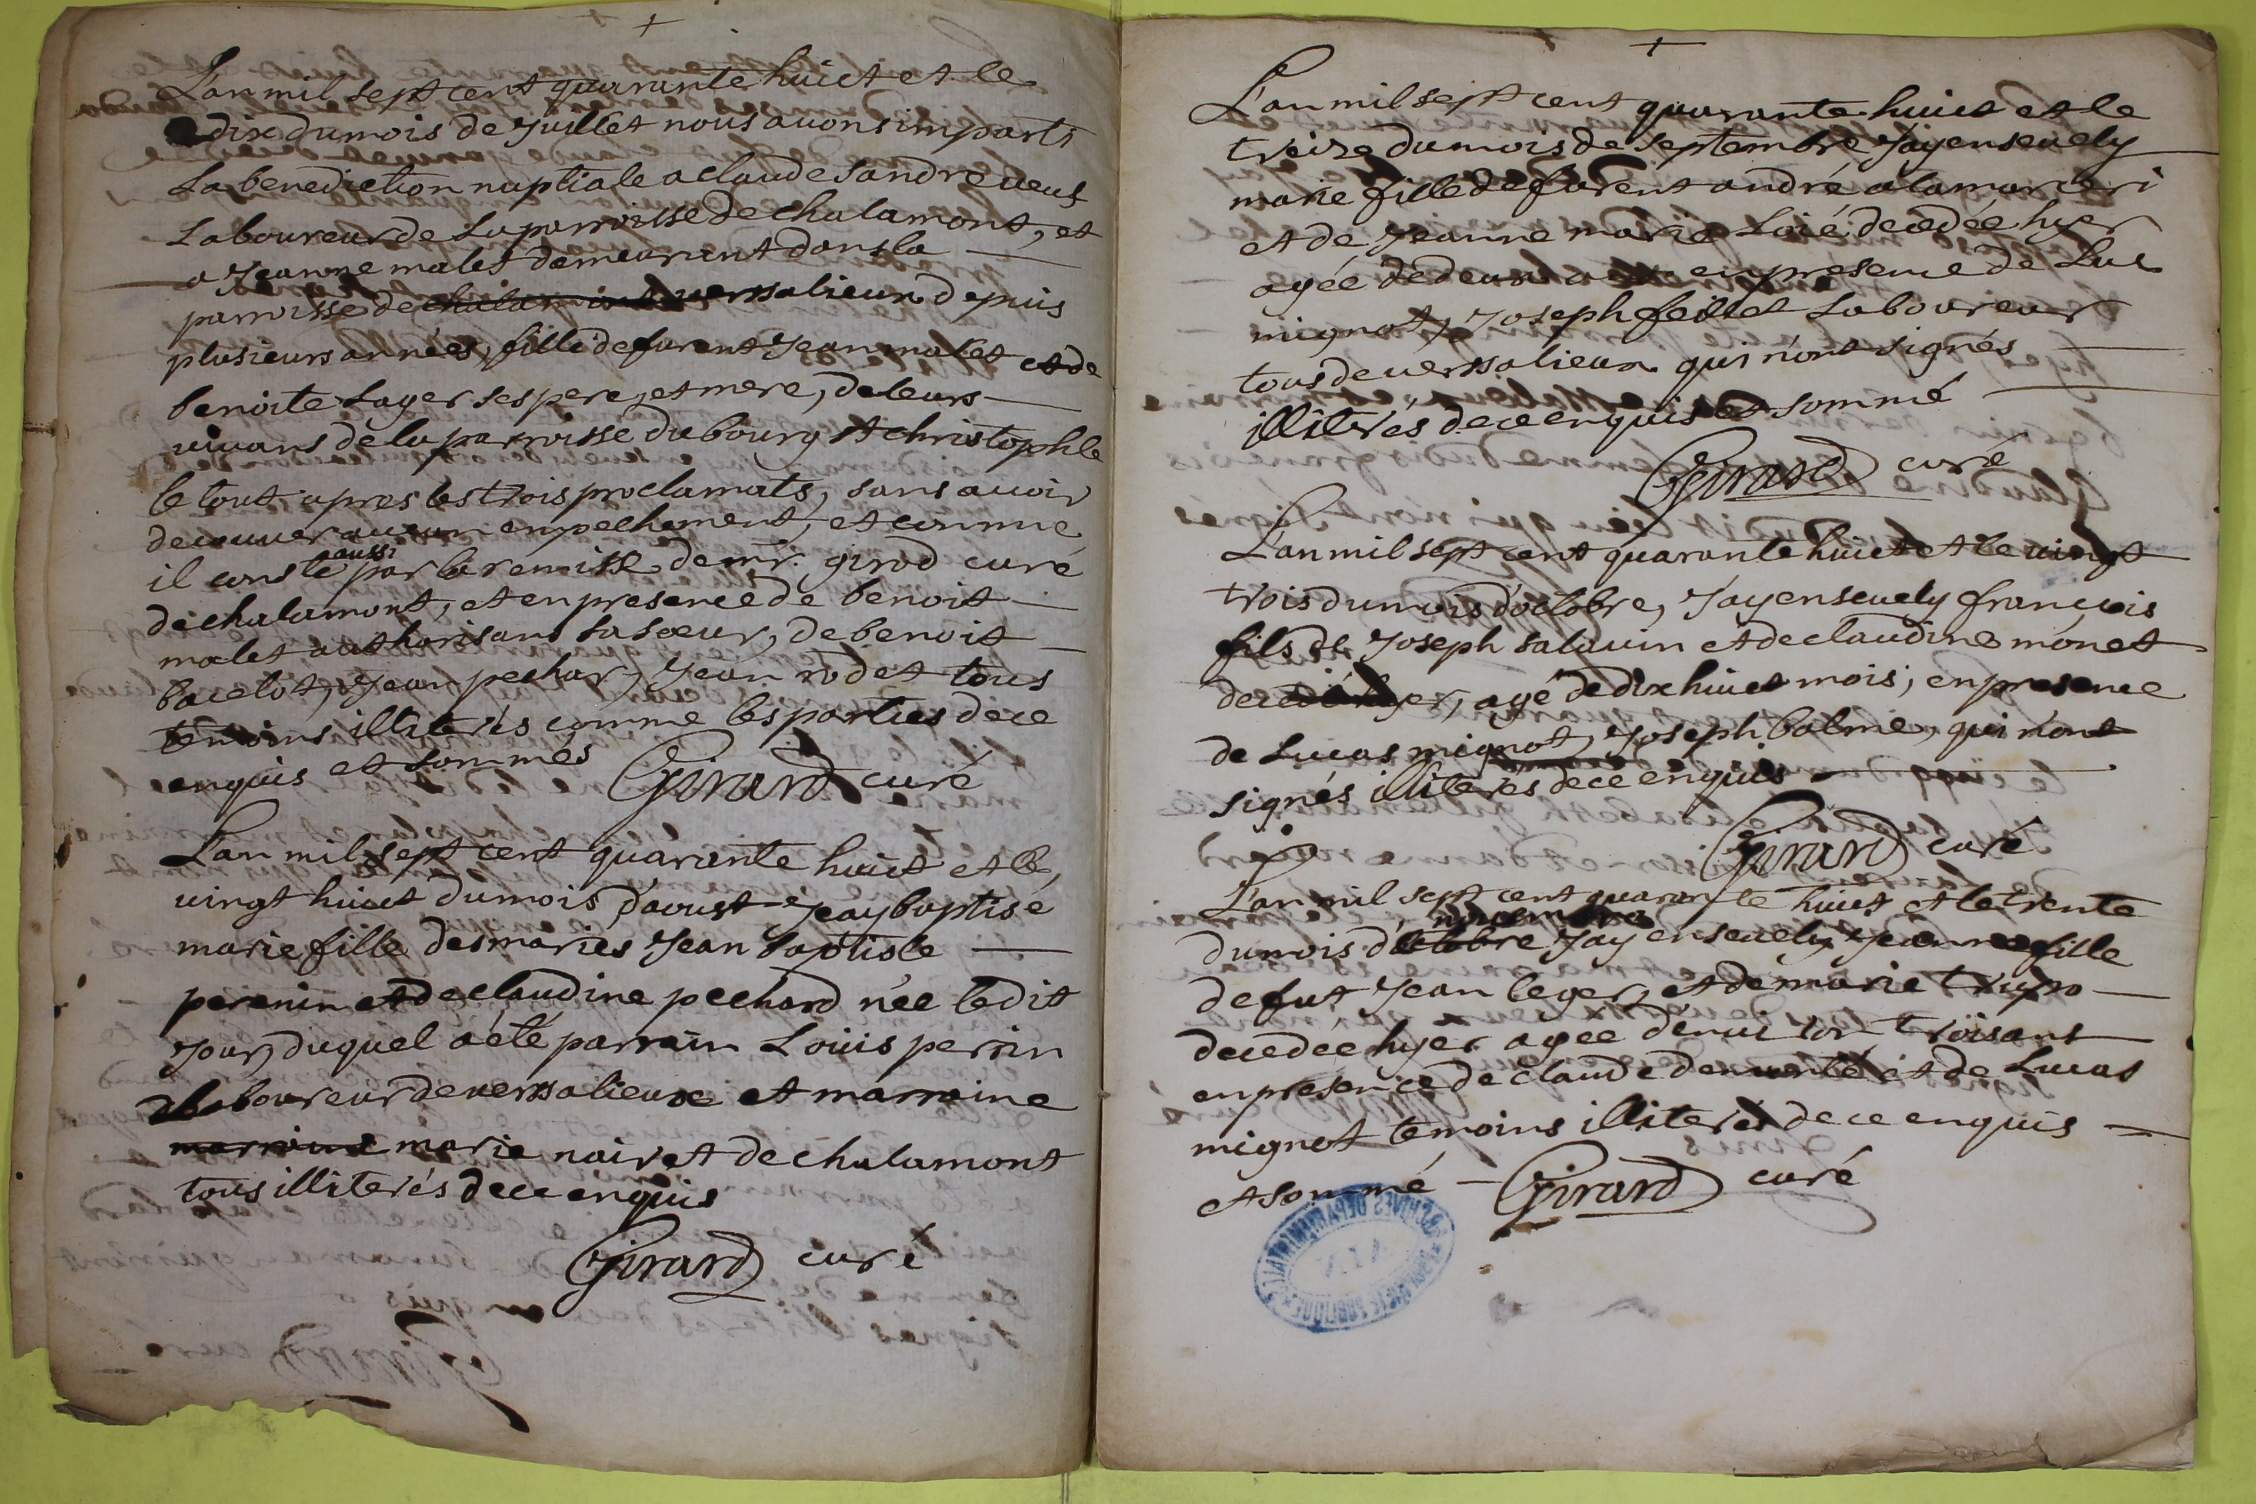 L'an mil sept cent quarante huict et le
dix du mois de Juillet nous avons imparti
La benediction nuptiale a claude Sandre veuf
Laboureur de La parroisse de chalamont, et
a Jeanne malet demeurant dans la
parroisse de chalamont versalieux depuis
plusieurs années, fille de furent Jean malet et de
benoite Lager ses pere, et mere, de leurs
vivans de la parroisse du bourg st christophle
le tout apres les trois proclamats, sans avoir
decouver aucun empechement, et comme
il conste aussi par la remisse de mr. girod curé
de chalamont, et en presence de benoit
malet authorisant sa soeur, de benoit
bacelot, Jean pechar, Jean rodet tous
temoins illiterés comme les parties de ce
enquis et sommés Girard curé
L'an mil sept cent quarante huict et le
vingt huict du mois d'aoust J'ay baptisé
marie fille des mariés Jean baptiste
perenin et de claudine pechard née le dit
jour, duquel a été parrain Loüis perrin
Laboureur de versalieux et marraine
marraine marie nairet de chalamont
tous illiterés de ce enquis
Girard curé
L'an mil sept cent quarante huict et le
treize du mois de septembre J'ay ensevely
marie fille de furent andré alamarteri
et de Jeanne marie Loié, decedée hyer
agée de deux ans en presence de Luc
mignot, Joseph feillet Laboureur
tous de versalieux qui n'ont signés
illiterés de ce enquis et sommé
Girard curé
L'an mil sept cent quarante huict et le vingt
trois du mois d'octobre, J'ay ensevely françois
fils de Joseph salavin et de claudine monet
decedé hyer, agé de dix huict mois, en presence
de Lucas mignot, Joseph balme, qui n'ont
signés illiterés de ce enquis
Girard curé
L'an mil sept cent quarante huict et le trente
novembre
du mois d'octobre J'ay ensevely Jeanne fille
de fut Jean leger, et de marie
decedée hyer agée d'environ troisans
en presence de claude et de Lucas
mignot temoins illiterés de ce enquis
et sommé Girard curé